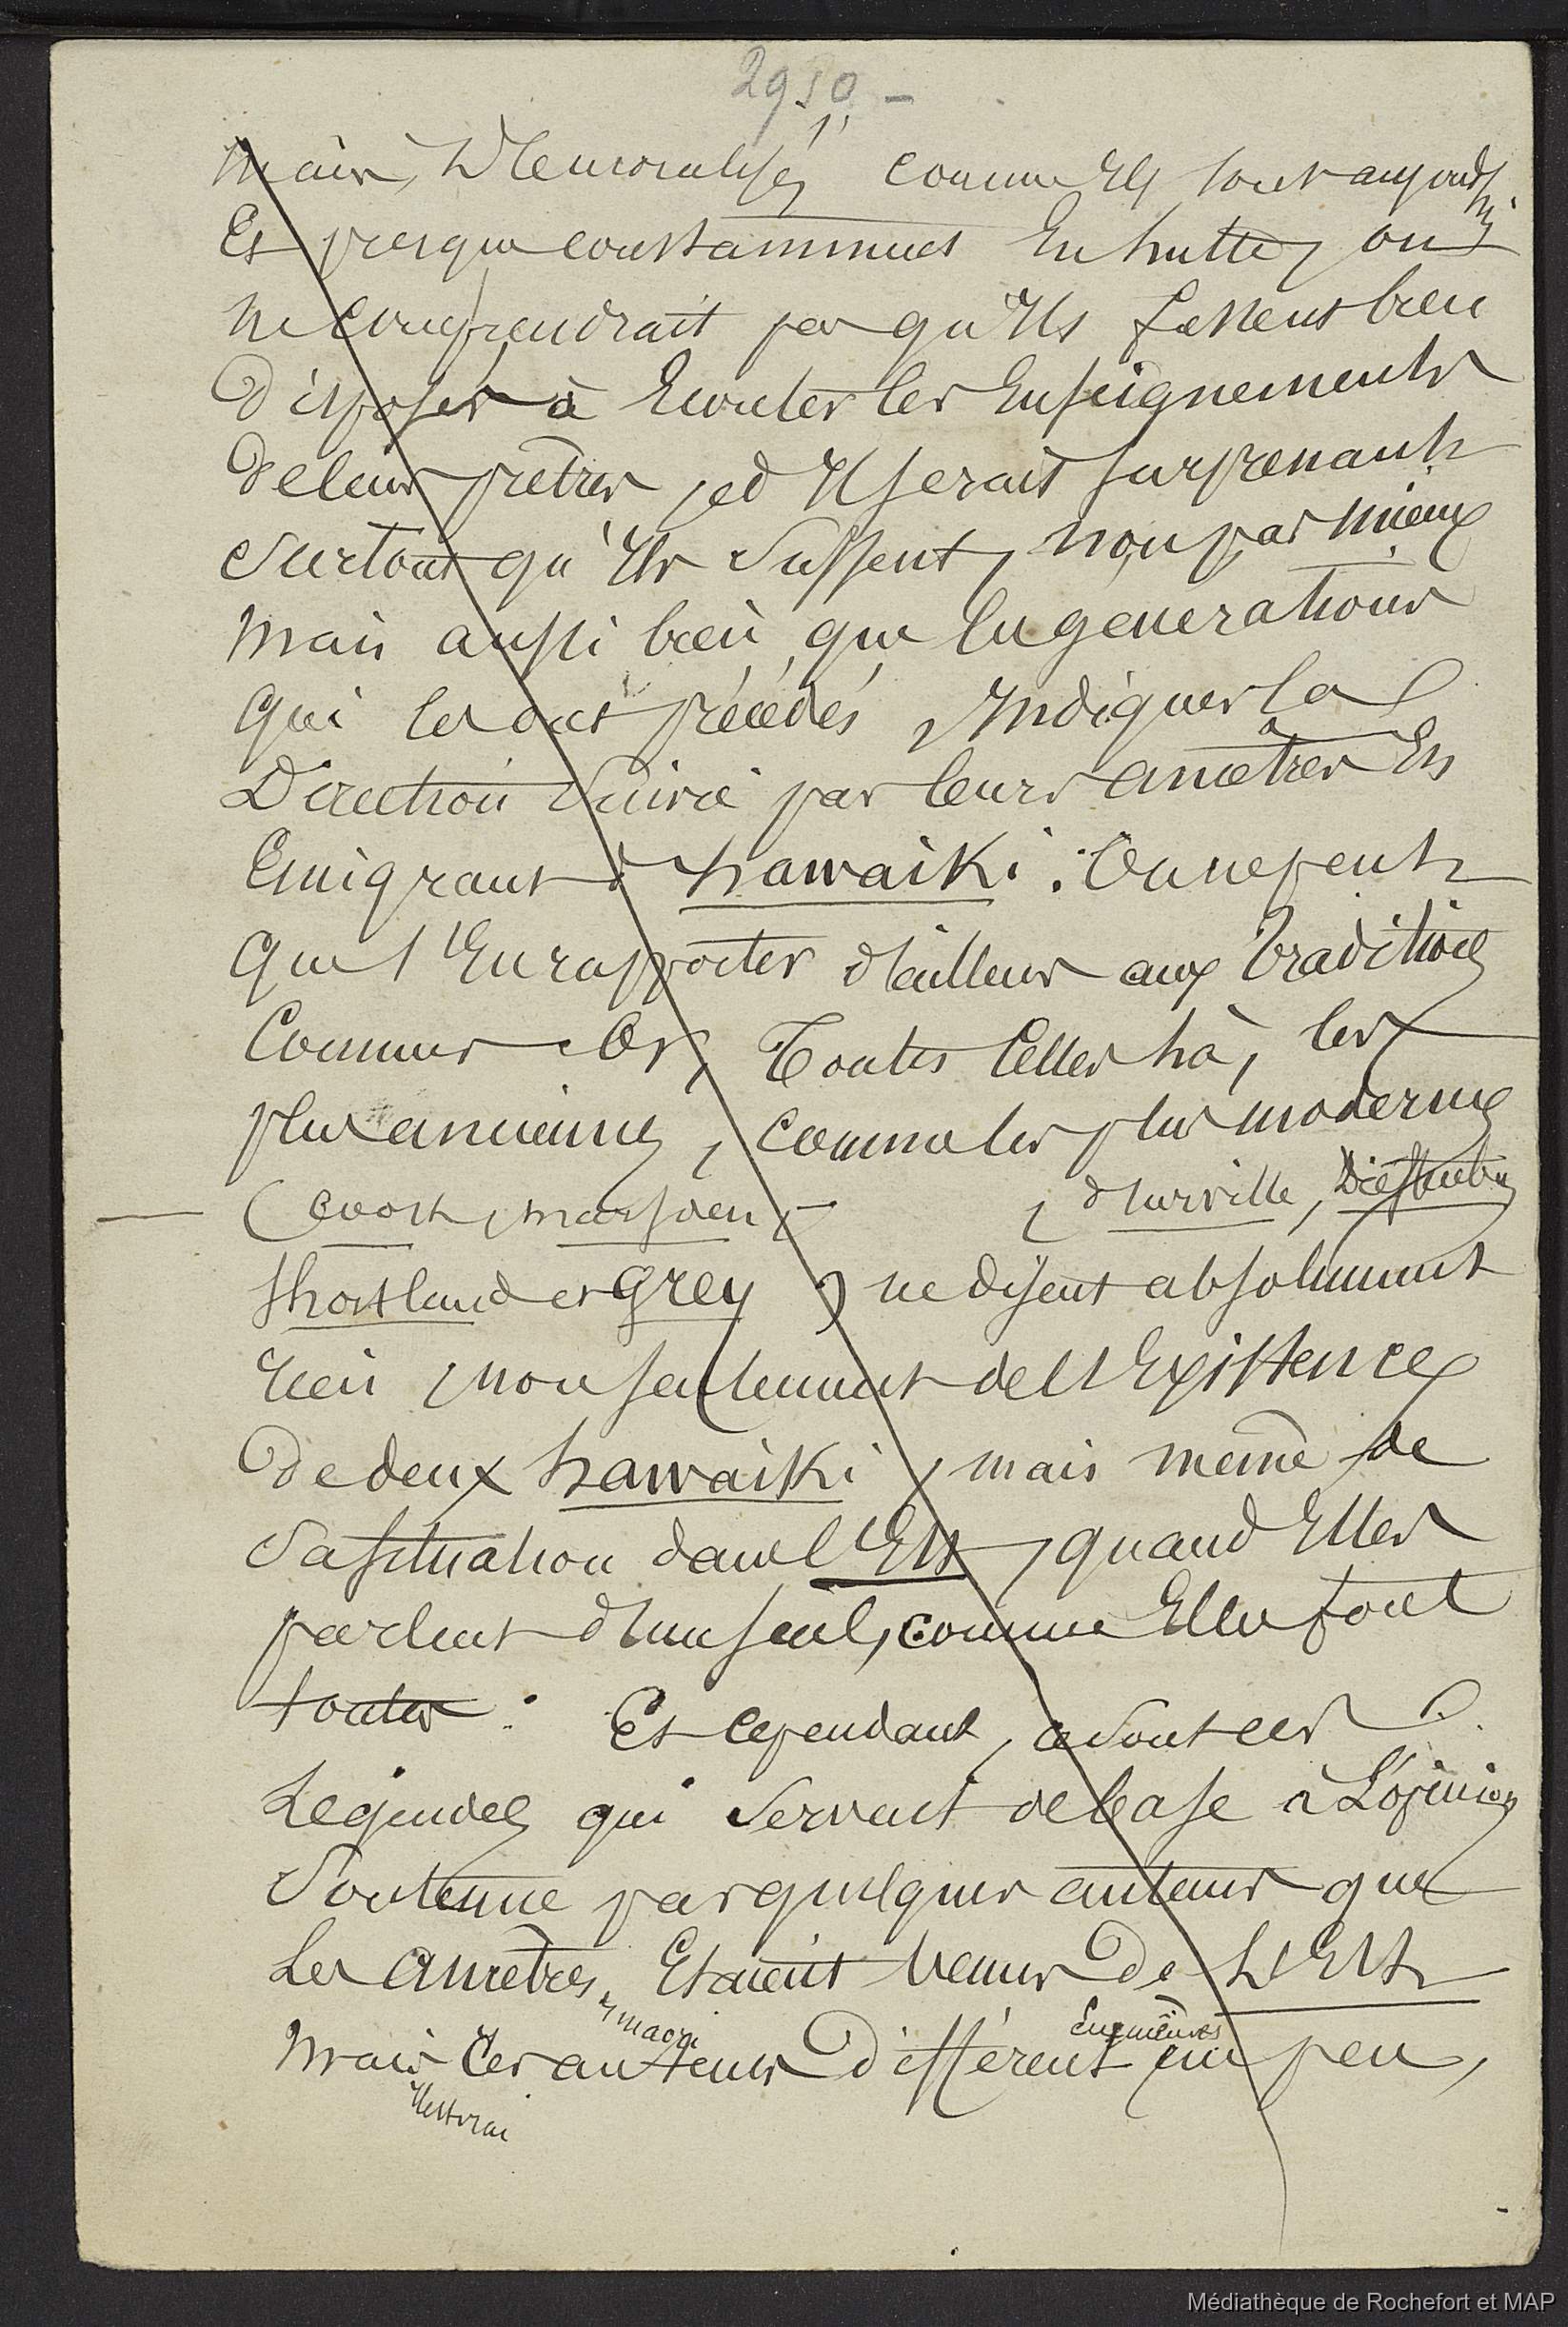 2950 -
mais, démoralisés comme ils sont aujourd'hui
Et presque constamment en lutte, on
ne comprendrait pas qu'ils fussent bien
disposés à Ecouter les Enseignements
de leurs prêtres, et il serait surprenant
surtout qu'ils sussent, non pas mieux
mais aussi bien que les générations
qui les ont précédés, indiquer la
Direction suivie par leurs ancêtres En
Emigrant d'hawaiki. On ne peut
que s'En rapporter d'ailleurs aux traditions
connues. Or, Toutes Celles là, les
plus anciennes, comme les plus modernes
(Cook, Marsden, d'Urville, Dieffenbach
Shortland et Grey) ne disent absolument
rien, non seulement de l'Existence
De deux hawaiki, mais même de
sa situation dans l'Est, quand Elles
parlent d'un seul, comme Elles font
toutes. Et cependant, ce sont ces
Légendes qui servent de base à L'opinion
Soutenue par quelques auteurs que
Les ancêtres des maori Etaient venus De L'Est
mais ces auteurs Diffèrent Eux mêmes un peu,
il est vrai
Médiathèque de Rochefort et MAP